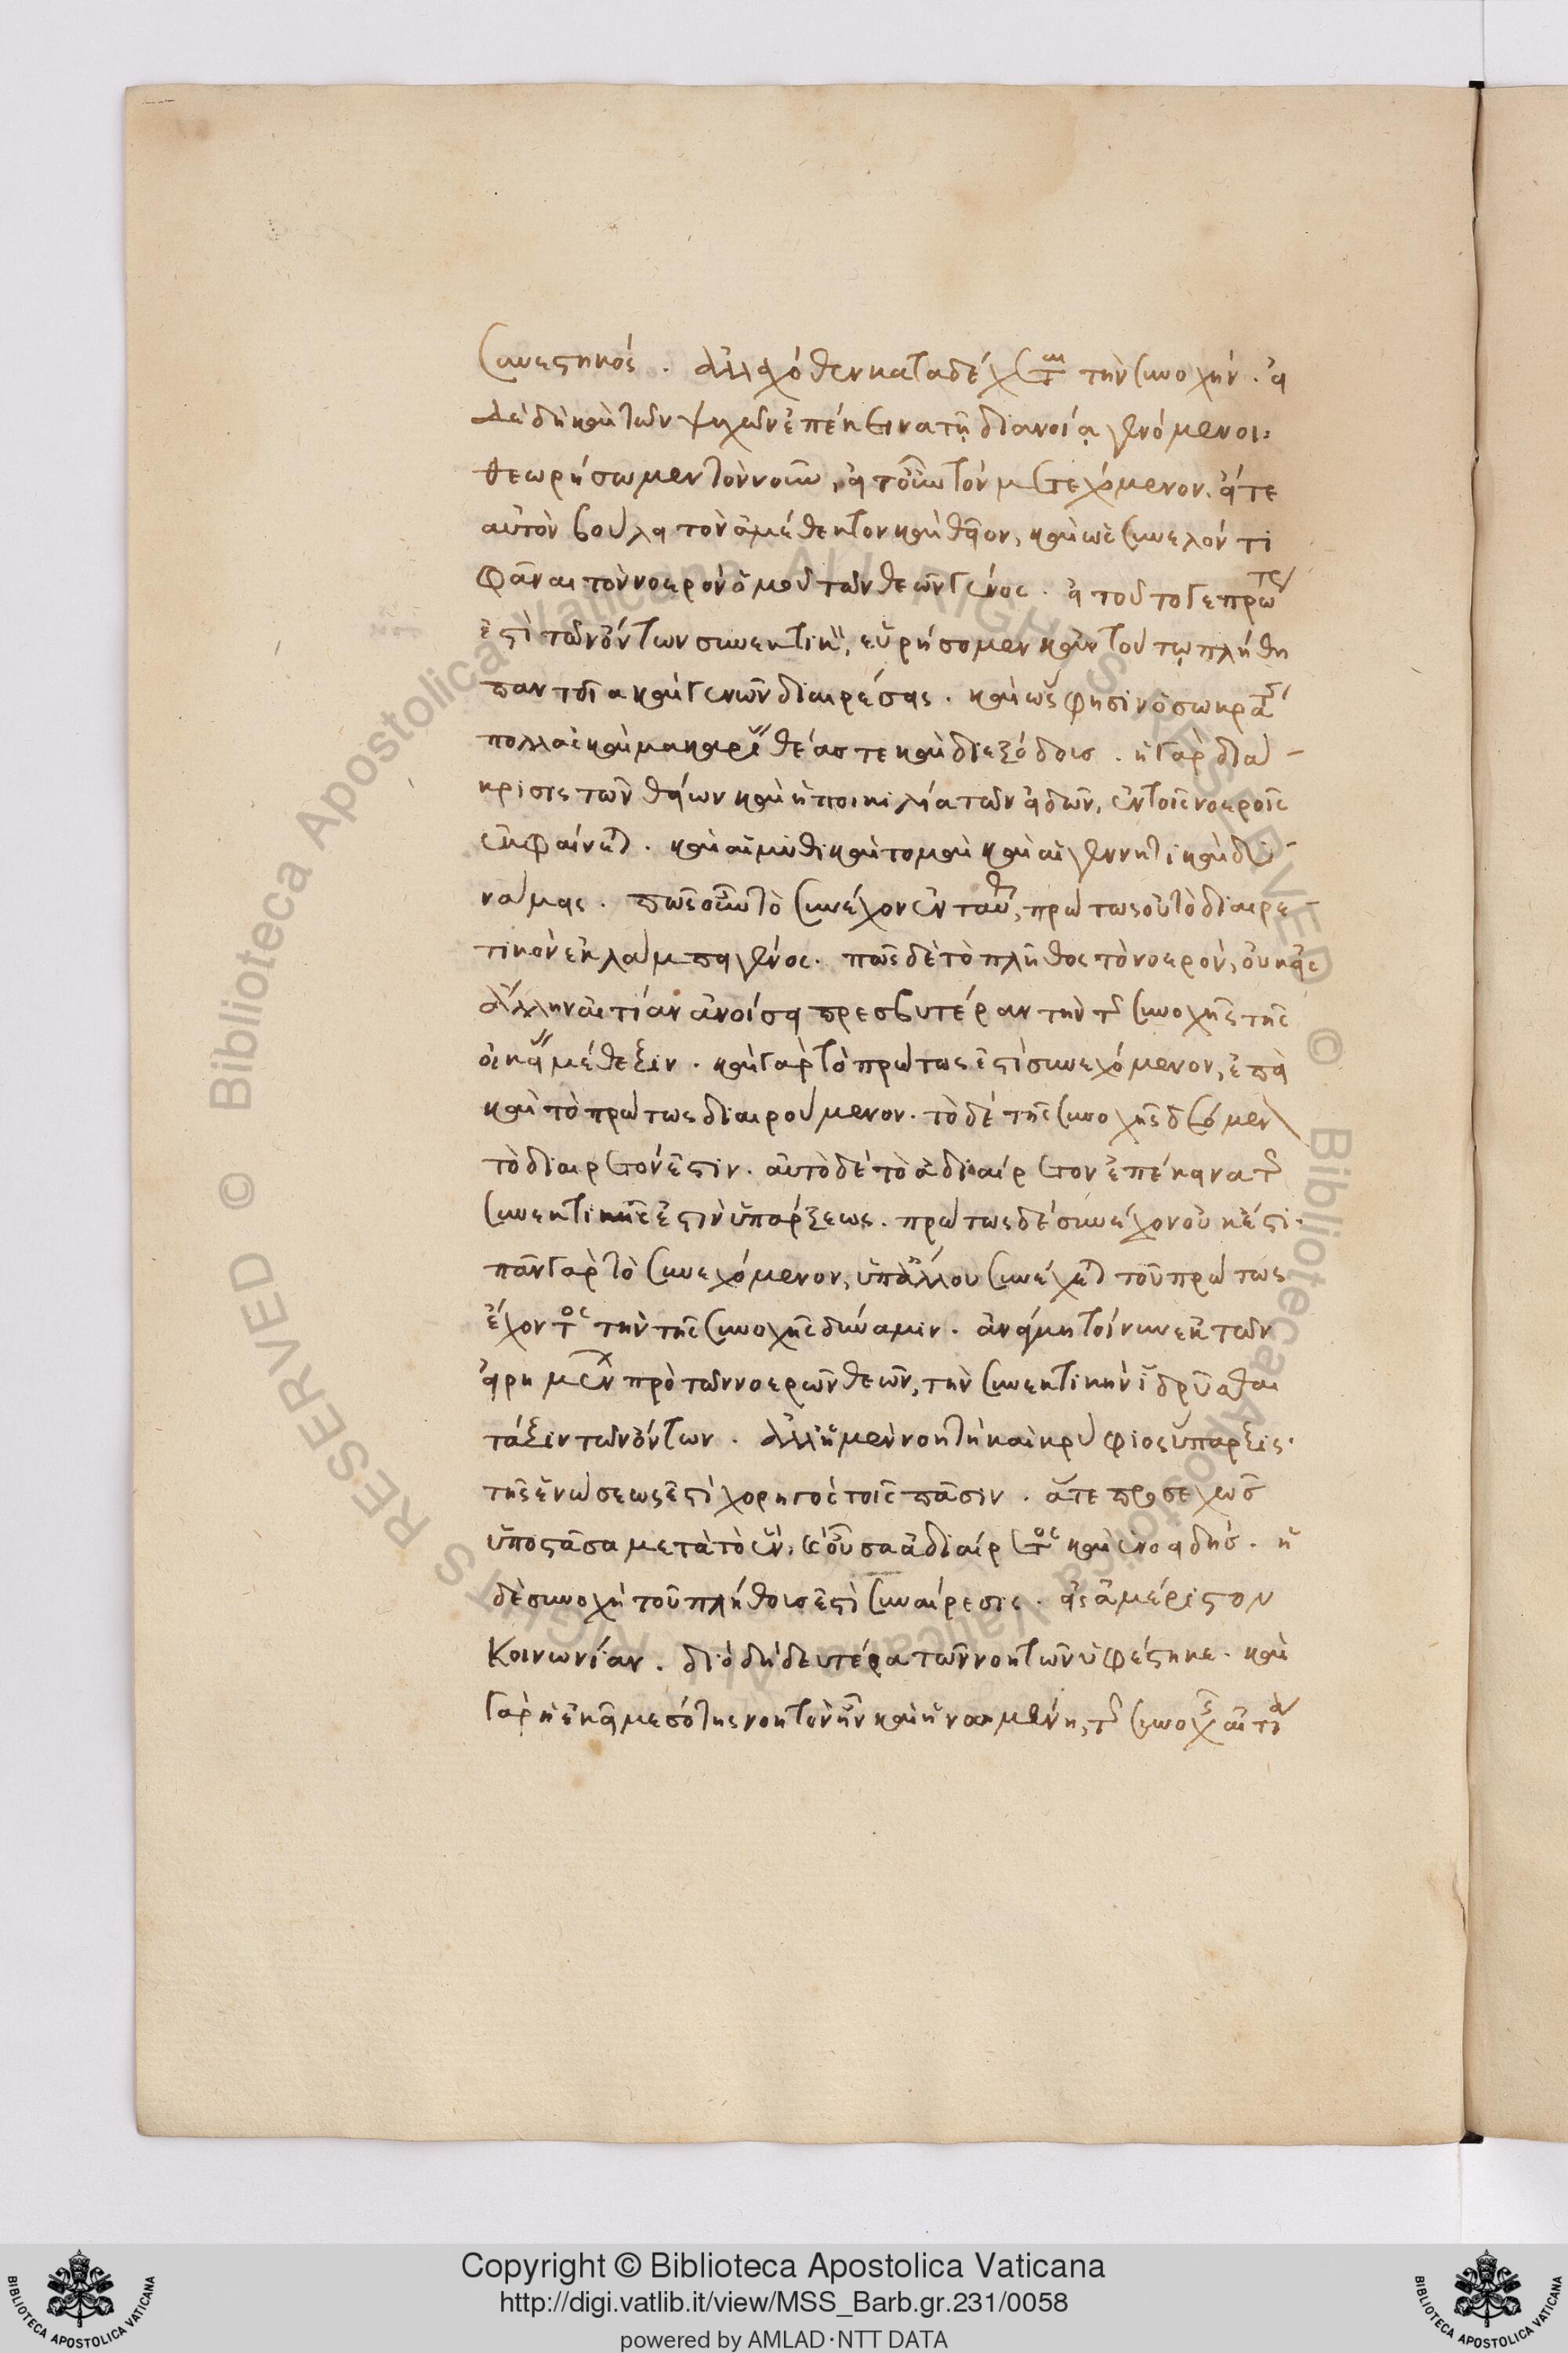 συνεστηκός. ἀλλαχόθεν καταδέχεται τὴν συνοχήν. εἰ
δὲ δὴ καὶ τῶν ψυχῶν ἐπέκεινα τῇ διανοίᾳ γενόμενοι
θεωρήσωμεν τὸν νοῦν, εἴτ' οὖν τὸν μετεχόμενον. εἴτε
αὐτὸν βούλει τὸν ἀμέθεκτον καὶ θεῖον, καὶ ὡς συνελόντι
φᾶναι τὸ νοερὸν ὁμοῦ τῶν θεῶν γένος. εἰ τοῦτό γε πρώτως
ἐστὶ τῶν ὄντων συνεκτικὸν, εὑρήσομεν κἀν τούτῳ πλήθη
παντοῖα καὶ γενῶν διαιρέσεις. καὶ ὥς φησιν ὁ σωκράτης
πολλαὶ καὶ μακάριαι θέαι τε καὶ διέξοδοι. ἡ γὰρ διά-
κρισις τῶν θείων καὶ ἡ ποικιλία τῶν εἰδῶν, ἐν τοῖς νοεροῖς
ἐκφαίνεται. καὶ αἱ μυθικαὶ τομαὶ καὶ αἱ γεννητικαὶ δυ-
νάμεις. πῶς οὖν τὸ συνέχον ἐν ταύτῃ, πρώτως οὗ τὸ διαιρε-
τικὸν ἐκλάμπει γένος. πῶς δὲ τὸ πλῆθος τὸ νοερὸν, οὐκ εἰς
ἄλλην αἰτίαν ἀνοίσει πρεσβυτέραν τὴν τῆς συνοχῆς τῆς
οἰκείας μέθεξιν. καὶ γὰρ τὸ πρώτως ἐστὶ συνεχόμενον, ἐπεὶ
καὶ τὸ πρώτως διαιρούμενον. τὸ δὲ τῆς συνοχῆς δεόμενον
τὸ διαιρετόν ἐστιν. αὐτὸ δὲ τὸ ἀδιαίρετον ἐπέκεινα τῆς
συνεκτικῆς ἐστὶν ὑπάρξεως. πρώτως δὲ συνέχον οὐκ ἔστι.
πᾶν γὰρ τὸ συνεχόμενον, ὑπ' ἄλλου συνέχεται τοῦ πρώτως
ἔχοντος τὴν τῆς συνοχῆς δύναμιν. ἀνάγκη τοίνυν ἐκ τῶν
εἰρημένων πρὸ τῶν νοερῶν θεῶν, τὴν συνεκτικὴν ἱδρῦσθαι
τάξιν τῶν ὄντων. ἀλλ' ἡ μὲν νοητὴ καὶ κρύφιος ὕπαρξις.
τῆς ἑνώσεως ἐστὶ χορηγὸς τοῖς πᾶσιν. ἅτε προσεχῶς
ὑποστᾶσα μετὰ τὸ ἕν, καὶ οὖσα ἀδιαίρετος καὶ ἑνοειδής. ἡ
δὲ συνοχὴ τοῦ πλήθους ἐστὶ συναίρεσις. εἰς ἀμέριστον
κοινωνίαν. διὸ δὴ δευτέρα τῶν νοητῶν ὑφέστηκε. καὶ
γὰρ ἡ ἐκεῖ μεσότης νοητὸν ἦν καὶ ἡνωμένη, τῆς συνοχῆς αἰτία
Copyright © Biblioteca Apostolica Vaticana
http://digi.vatlib.it/view/MSS_Barb.gr.231/0058
powered by AMLAD·NTT DATA